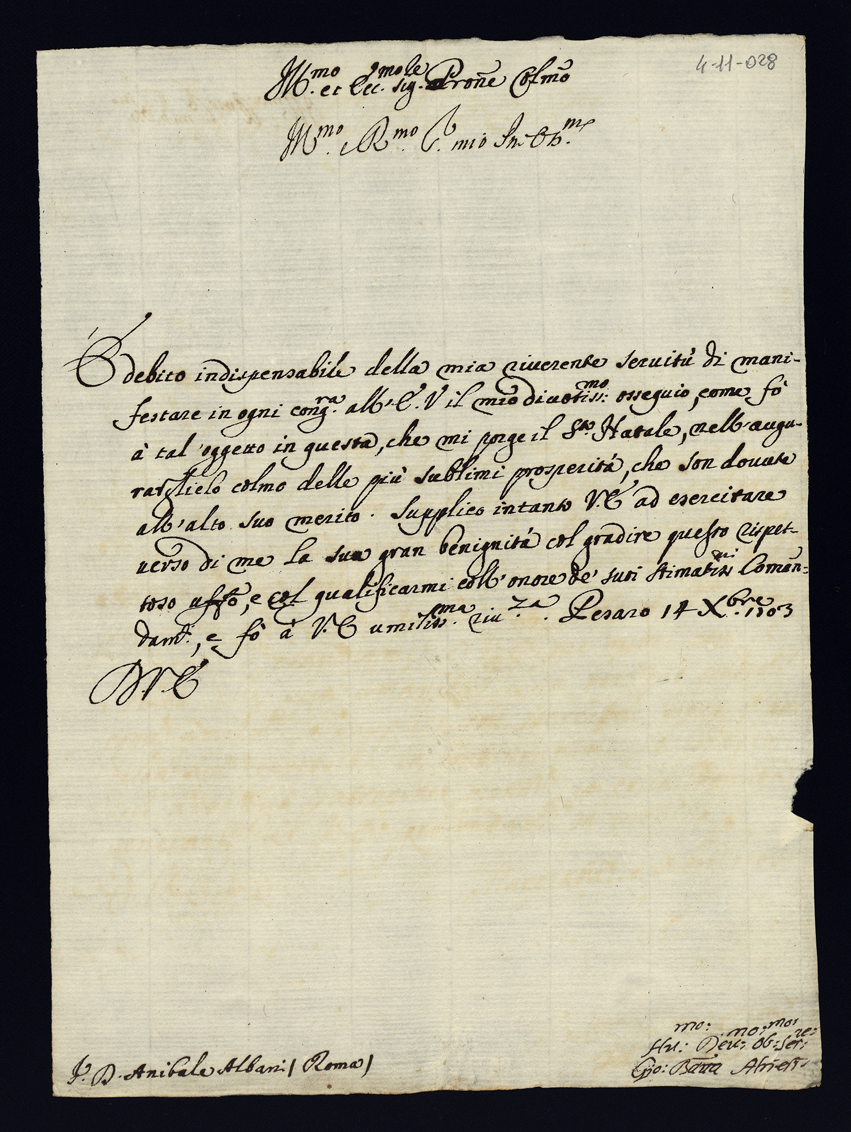 4-11-028
Ill.mo et Ecc.mo Sig.re Prōne Colmō
Ill.mo Rmo mio
È debito indispensabile della mia riuerente seruitù di mani-
festare in ogni cong.ra all'E.V il mio diuotiss:mo osseguio, come fò
à tal'oggetto in questa, che mi porge il S.to Natale, nell'augu-
rarglielo colmo delle più sublimi prosperità, che son douute
all'alto suo merito. Supplico intanto V.E ad esercitare
uerso di me la sua gran benignità col gradire questo rispet-
toso uffō, e col qualificarmi coll'onore de' suoi stimatiss:mi Comān-
dam.ti, e fò à V.E umiliss.ma riu.za. Pesaro 14 Xbre. 1703
D.V.E
mo: mo: mo: re:
Hu: Deu: ob: ser:
S.r D. Anibale Albani / Roma /
Gio: Batta